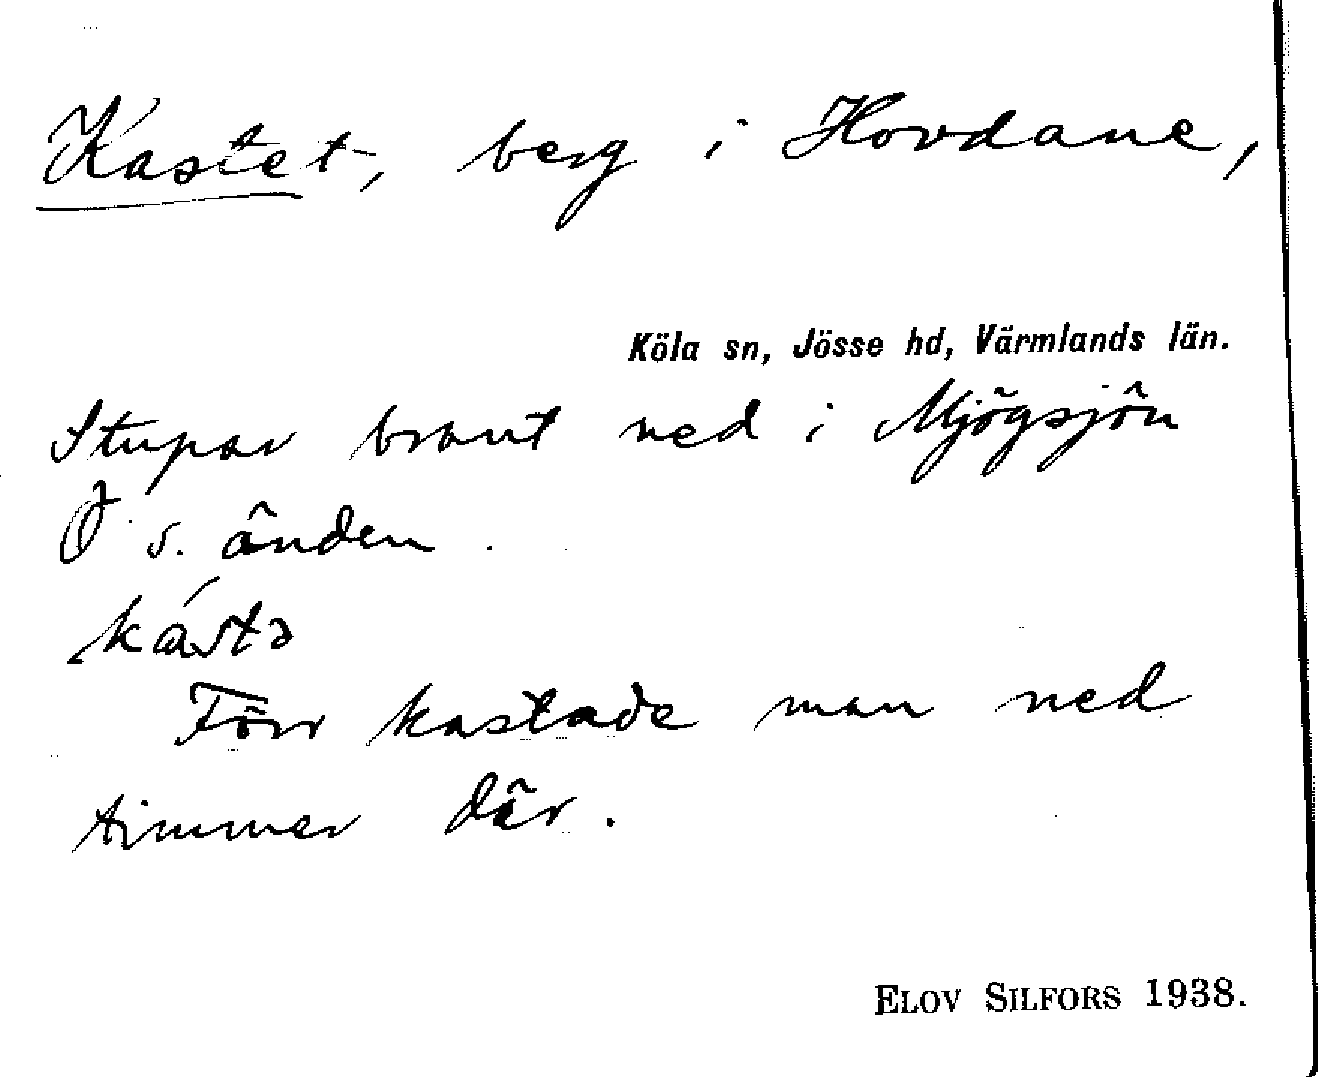 Kastet, berg i Hovdane,
Köla sn, Jösse hd, Värmlands län.
Stupar brant ned i Mjögsjön
s. änden.
kástə
Förr kastade man ned
timmer där.
ELOV SILFORS 1938.